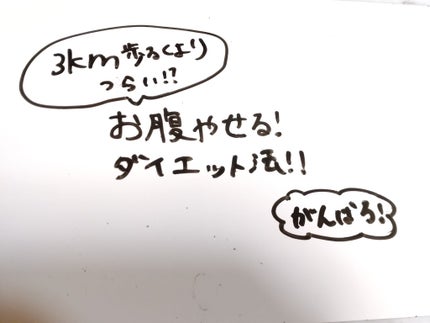 3km歩るくより
つらい!?
お腹やせる!
ダイエット法!!
がんばろ!